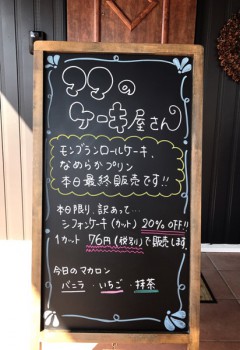 ママの
ケーキ屋さん
モンブランロールケーキ、
なめらかプリン
本日最終販売です!!
本日限り、訳あって…
シフォンケーキ(カット) 20% OFF!!
1カット 76円(税別)で販売します。
今日のマカロン
バニラ・いちご・抹茶